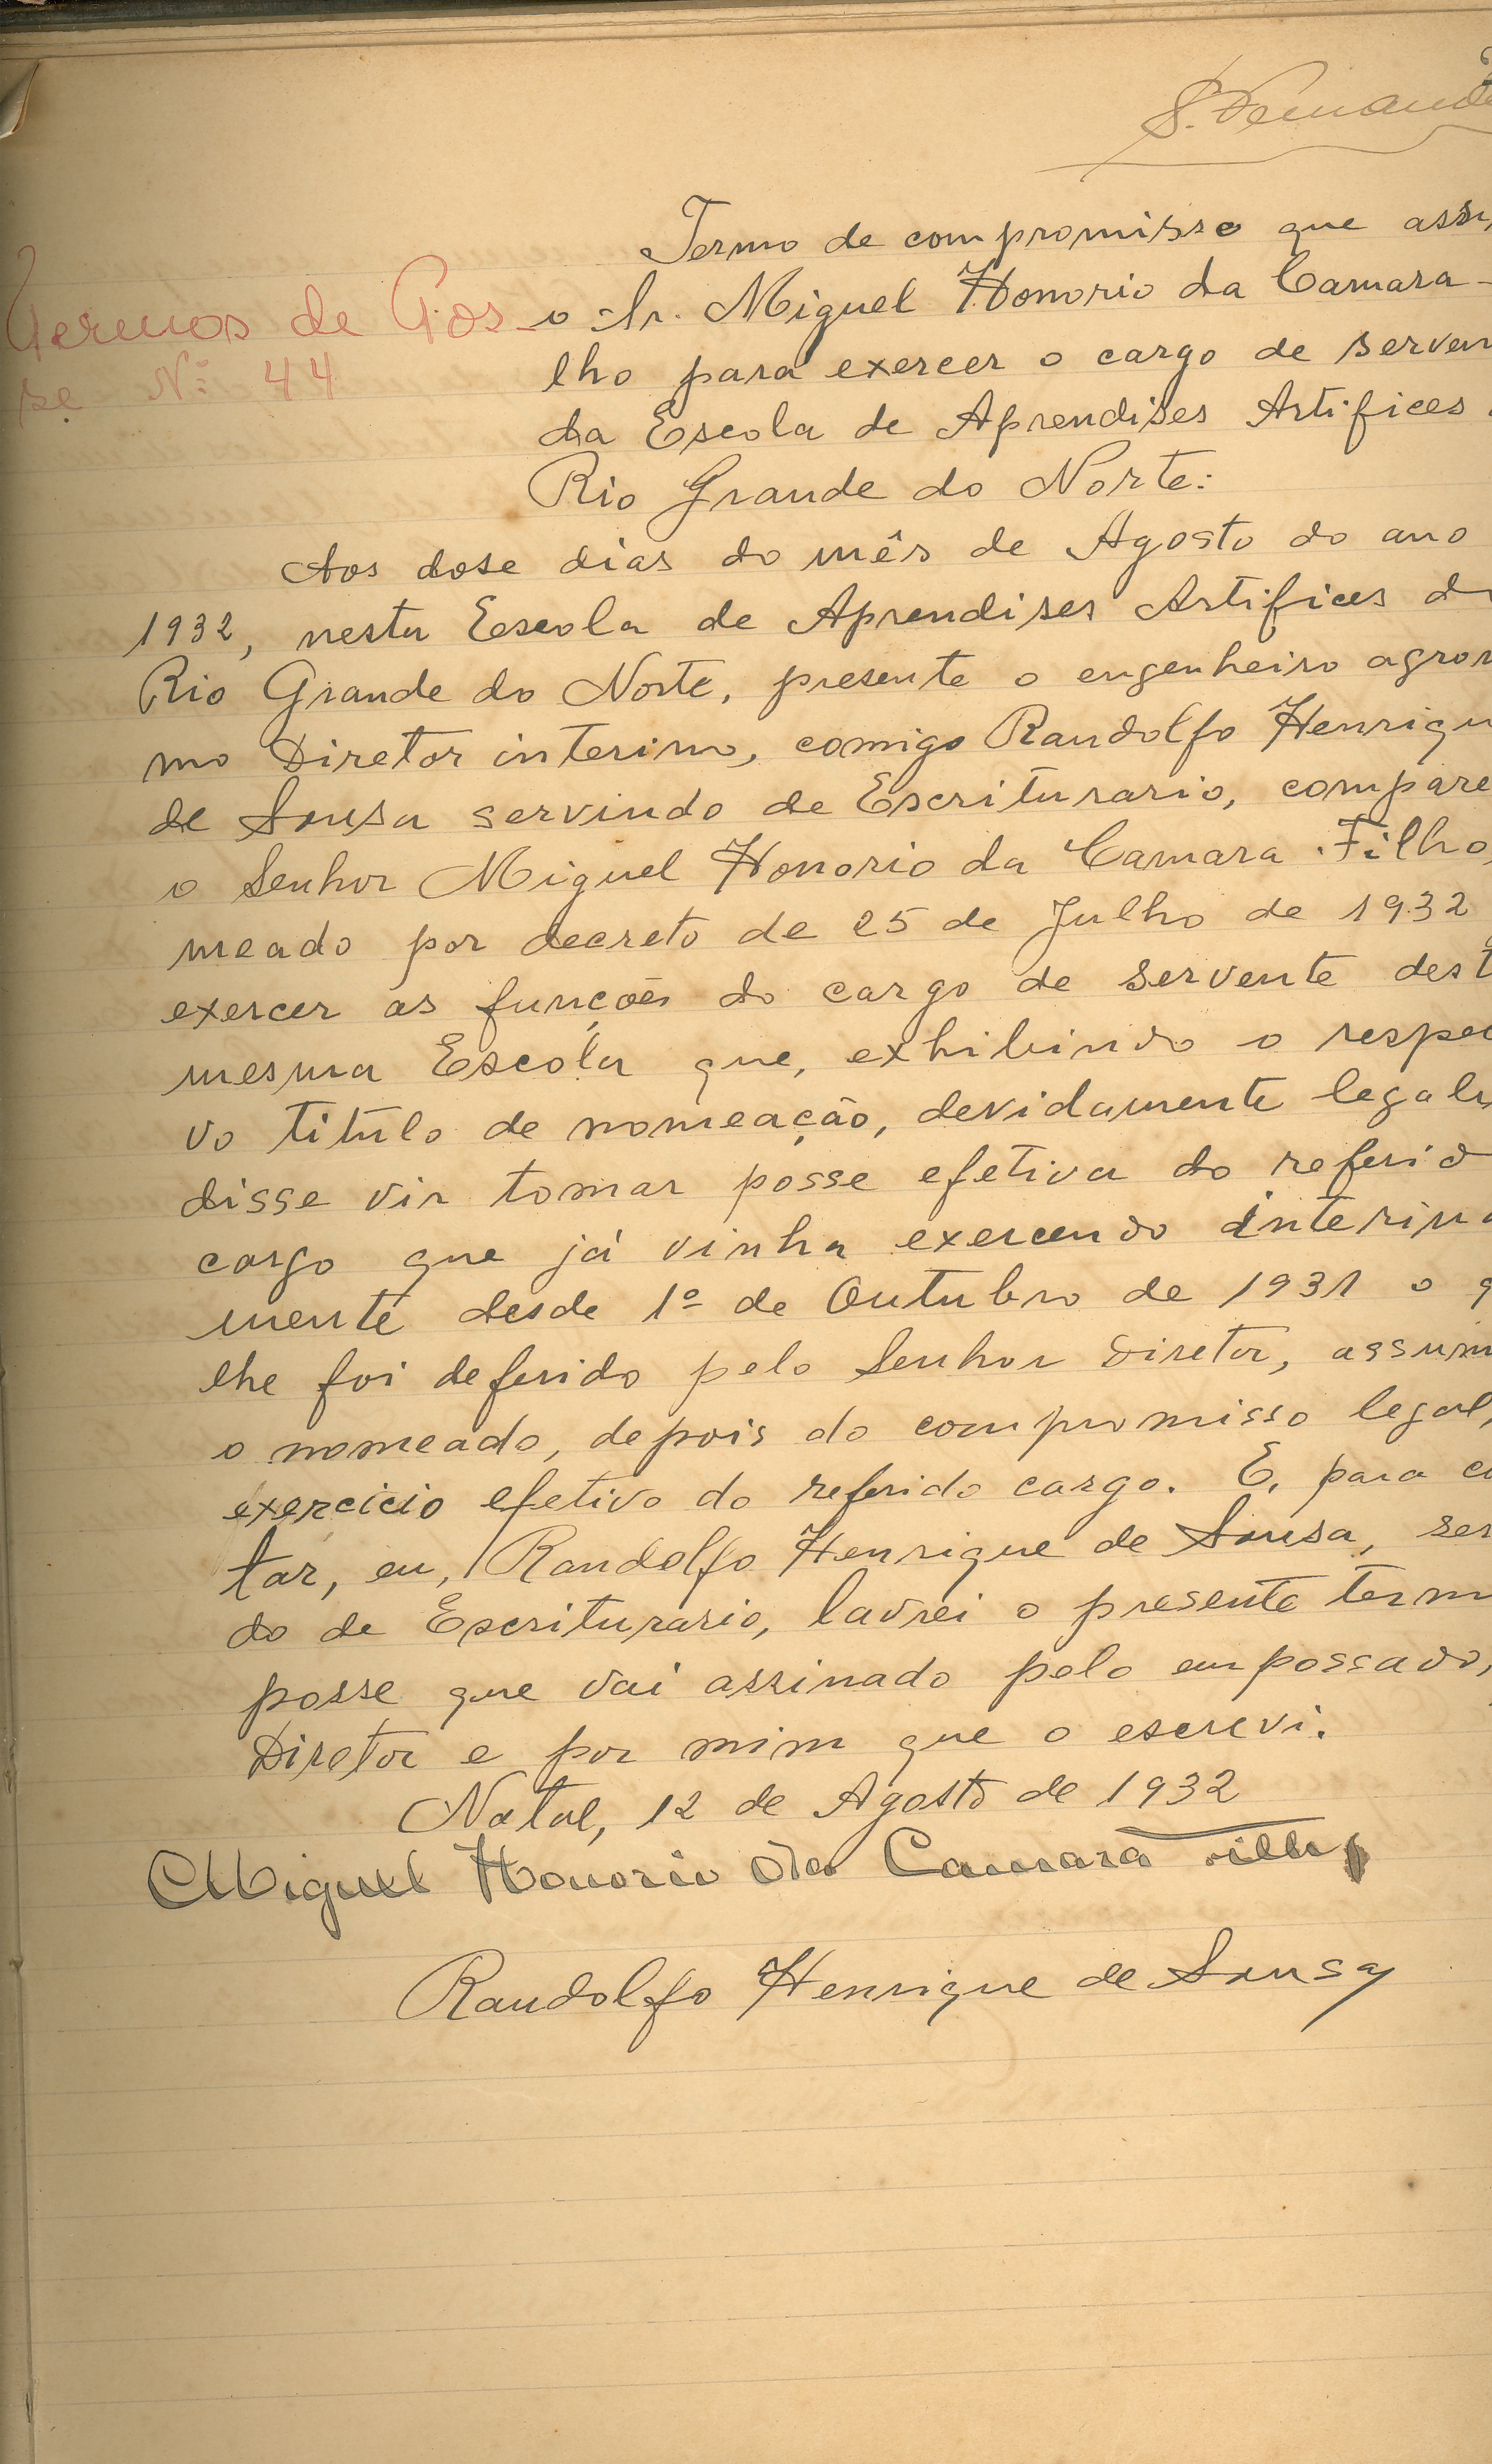 S. Fernand
Termo de compromisso que assu
Termos de Pos-
se Nº 44
o Sr. Miguel Honorio da Camara -
lho para exercer o cargo de serven
da Escola de Aprendises Artifices
Rio Grande do Norte:
Aos dose dias do mês de Agosto do ano
1932, nesta Escola de Aprendises Artifices do
Rio Grande do Norte, presente o engenheiro agron
mo Diretor interino, comigo Randolfo Henriqu
de Sousa servindo de Escriturario, compare
o Senhor Miguel Honorio da Camara Filho,
meado por decreto de 25 de Julho de 1932
exercer as funções do cargo de servente dest
mesma Escola que, exhibindo o respec
vo titulo de nomeação, devidamente legali
disse vir tomar posse efetiva do referid
cargo que já vinha exercendo interina
mente desde 1º de Outubro de 1931 o q
lhe foi deferido pelo Senhor Diretor, assum
o nomeado, depois do compromisso legal,
exercicio efetivo do referido cargo. E, para co
tar, eu, Randolfo Henrique de Sousa, ser
do de Escriturario, lavrei o presente term
posse que vai assinado pelo empossado,
Diretor e por mim que o escrevi.
Natal, 12 de Agosto de 1932
Miguel Honorio da Camara Filho
Randolfo Henrique de Sousa